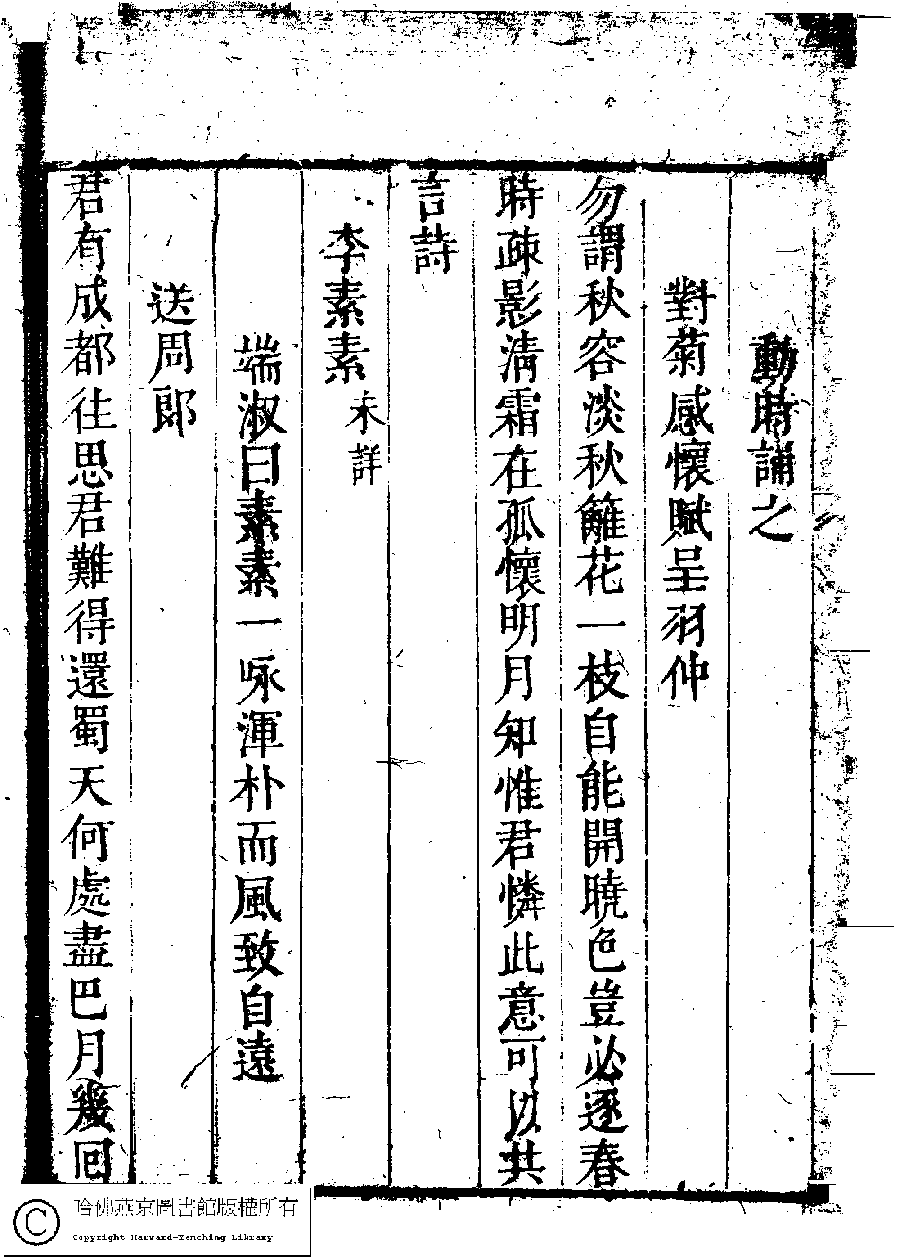 動時誦之
對菊感懷賦呈羽仲
勿謂秋容淡秋籬花一枝自能開曉色豈必逐春
時疎影清霜在孤懷明月知惟君憐此意可以共
言詩
李素素 未詳
端淑曰素素一咏渾朴而風致自遠
送周郎
君有成都往思君難得還蜀天何處盡巴月幾回
哈佛燕京圖書館版權所有
Copyright Harvard-Yenching Library